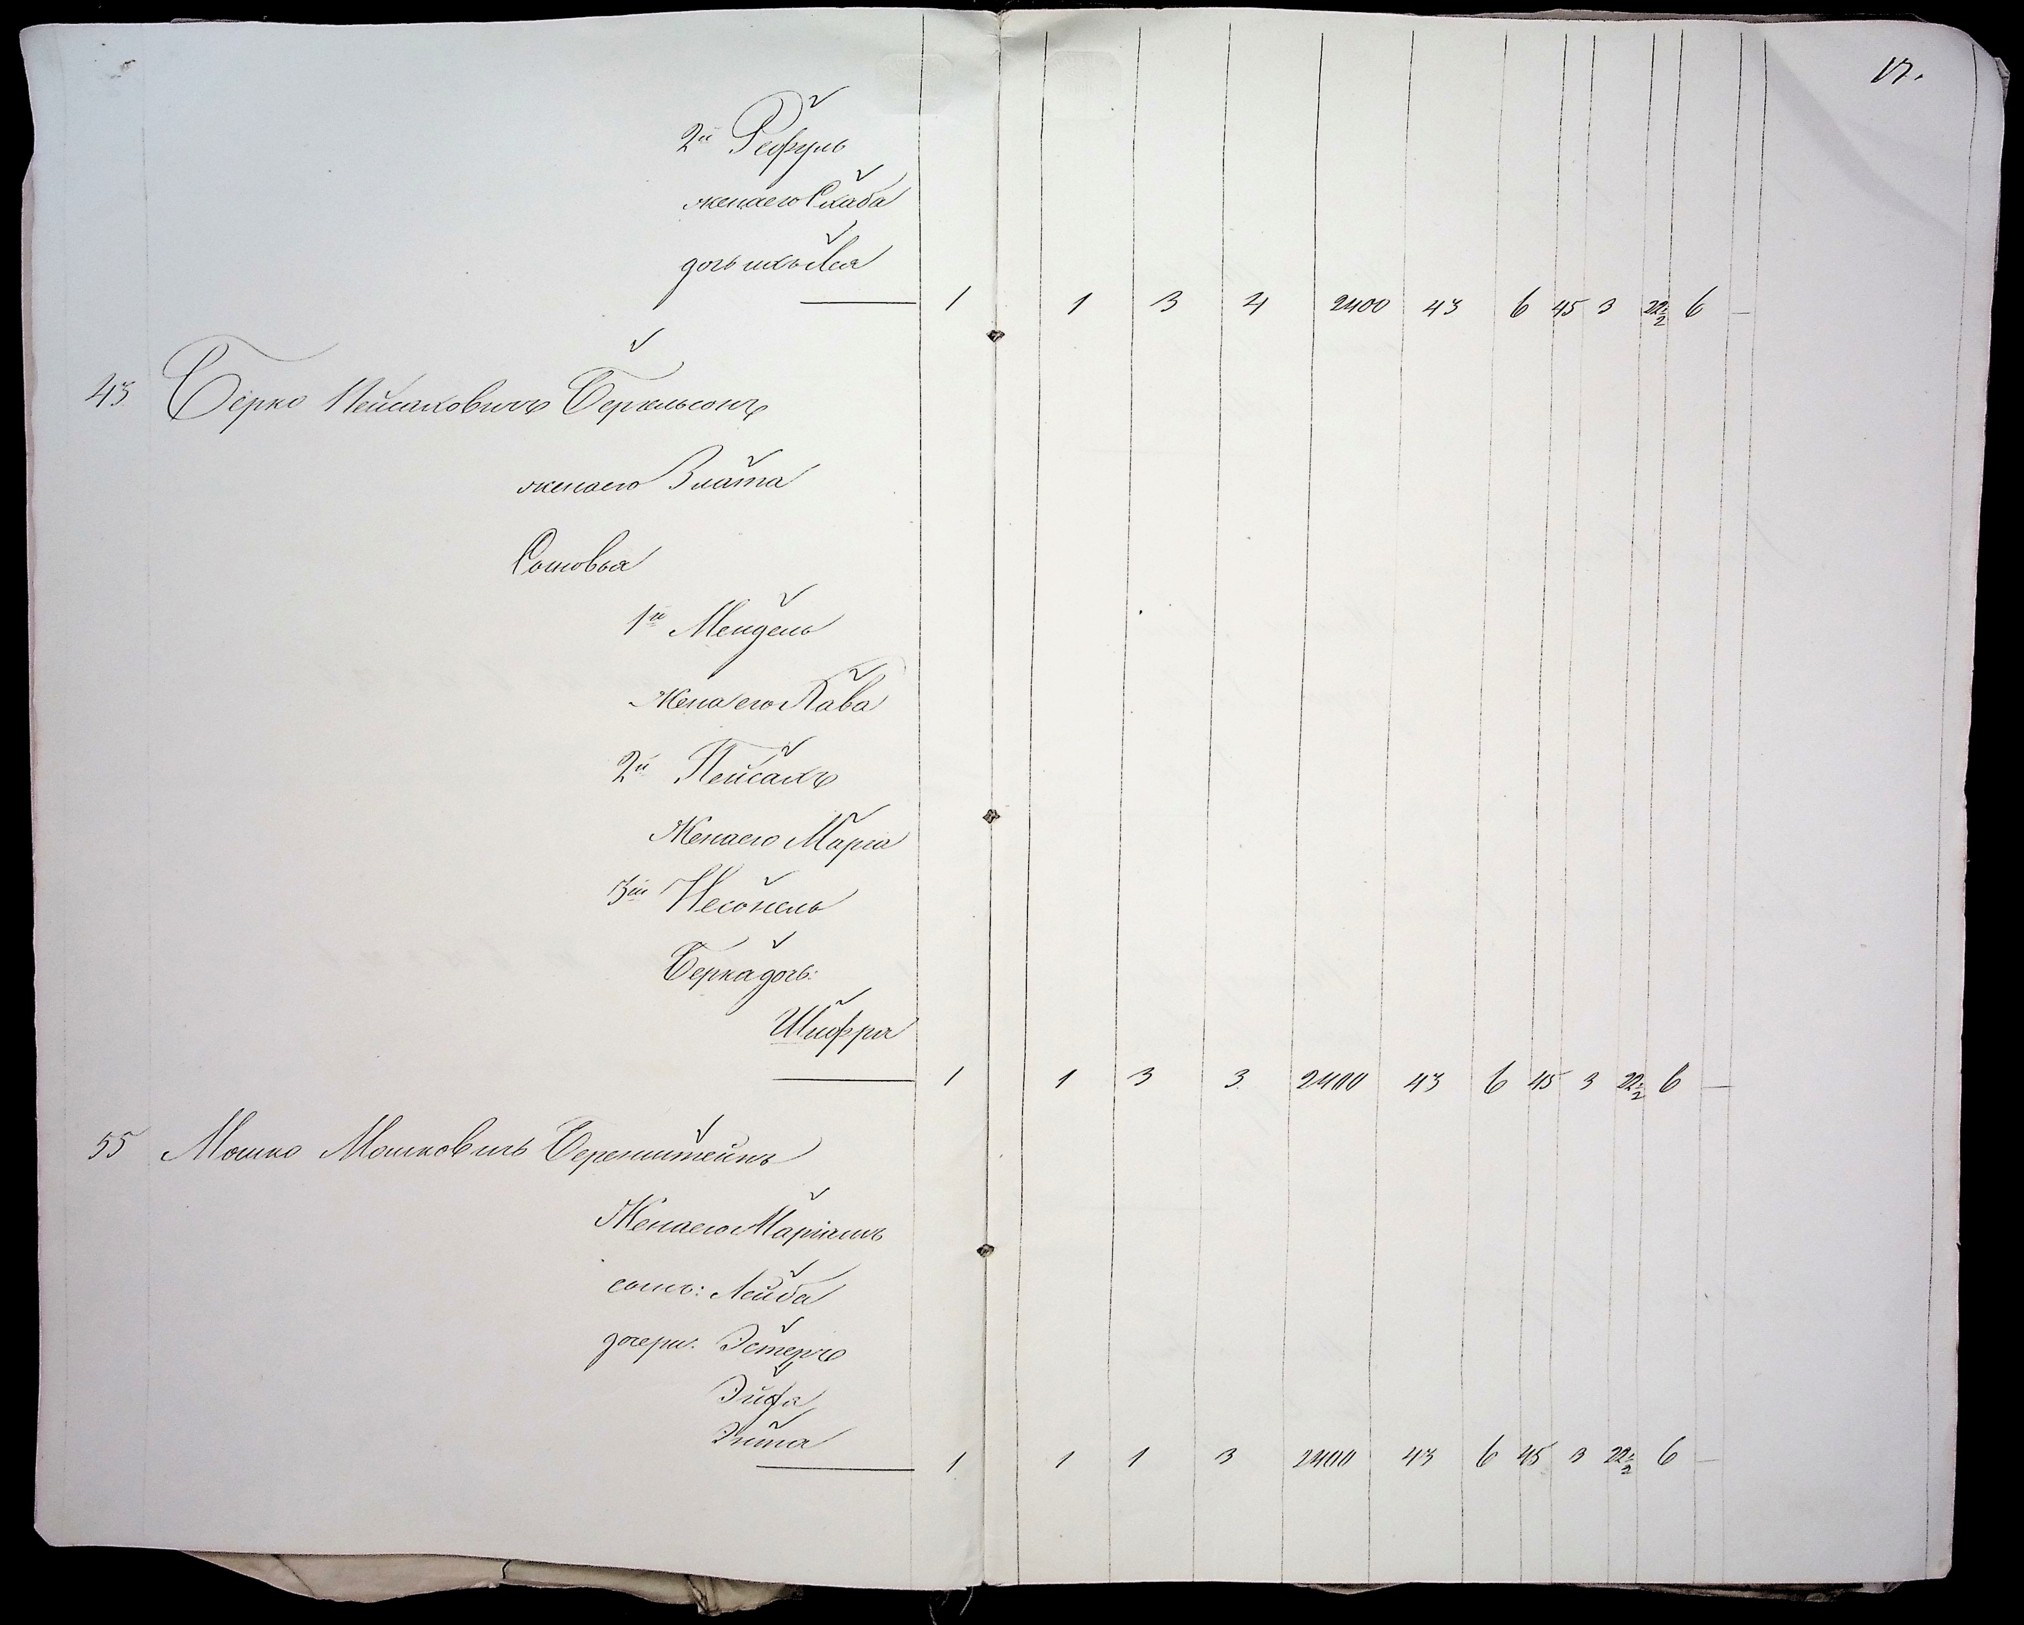 17.
2й Рефуль
жена его Хаба
дочь ихъ Лея
1 1 3 4 2400 43 6 45 3 22½ 6 —
43 Берко Пейсаховичъ Беркльсонъ
жена его Злата
Сыновья
1й Мендель
Жена его Хава
2й Пейсахъ
Жена его Марга
3й Несонель
Берка дочь:
Шифра
1 1 3 3 2400 43 6 45 3 22½ 6 —
55 Мошко Мошковичъ Беренштейнъ
Жена его Маріямъ
сынъ: Лейба
дочери: Эстеръ
Эйдя
Энта
1 1 1 3 2400 43 6 45 3 22½ 6 —